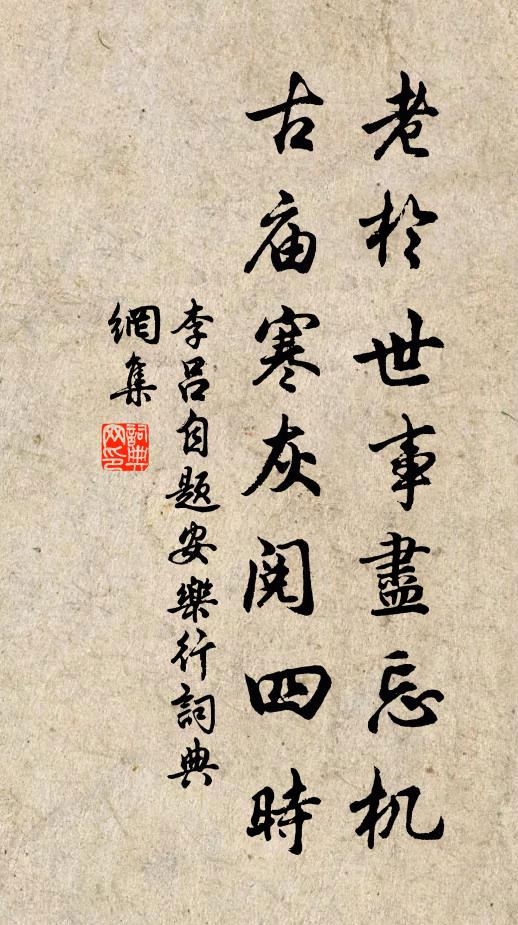 老於世事盡忘机
古庙寒灰閱四時
李吕自题安樂行詞典
網集
詞典
网印